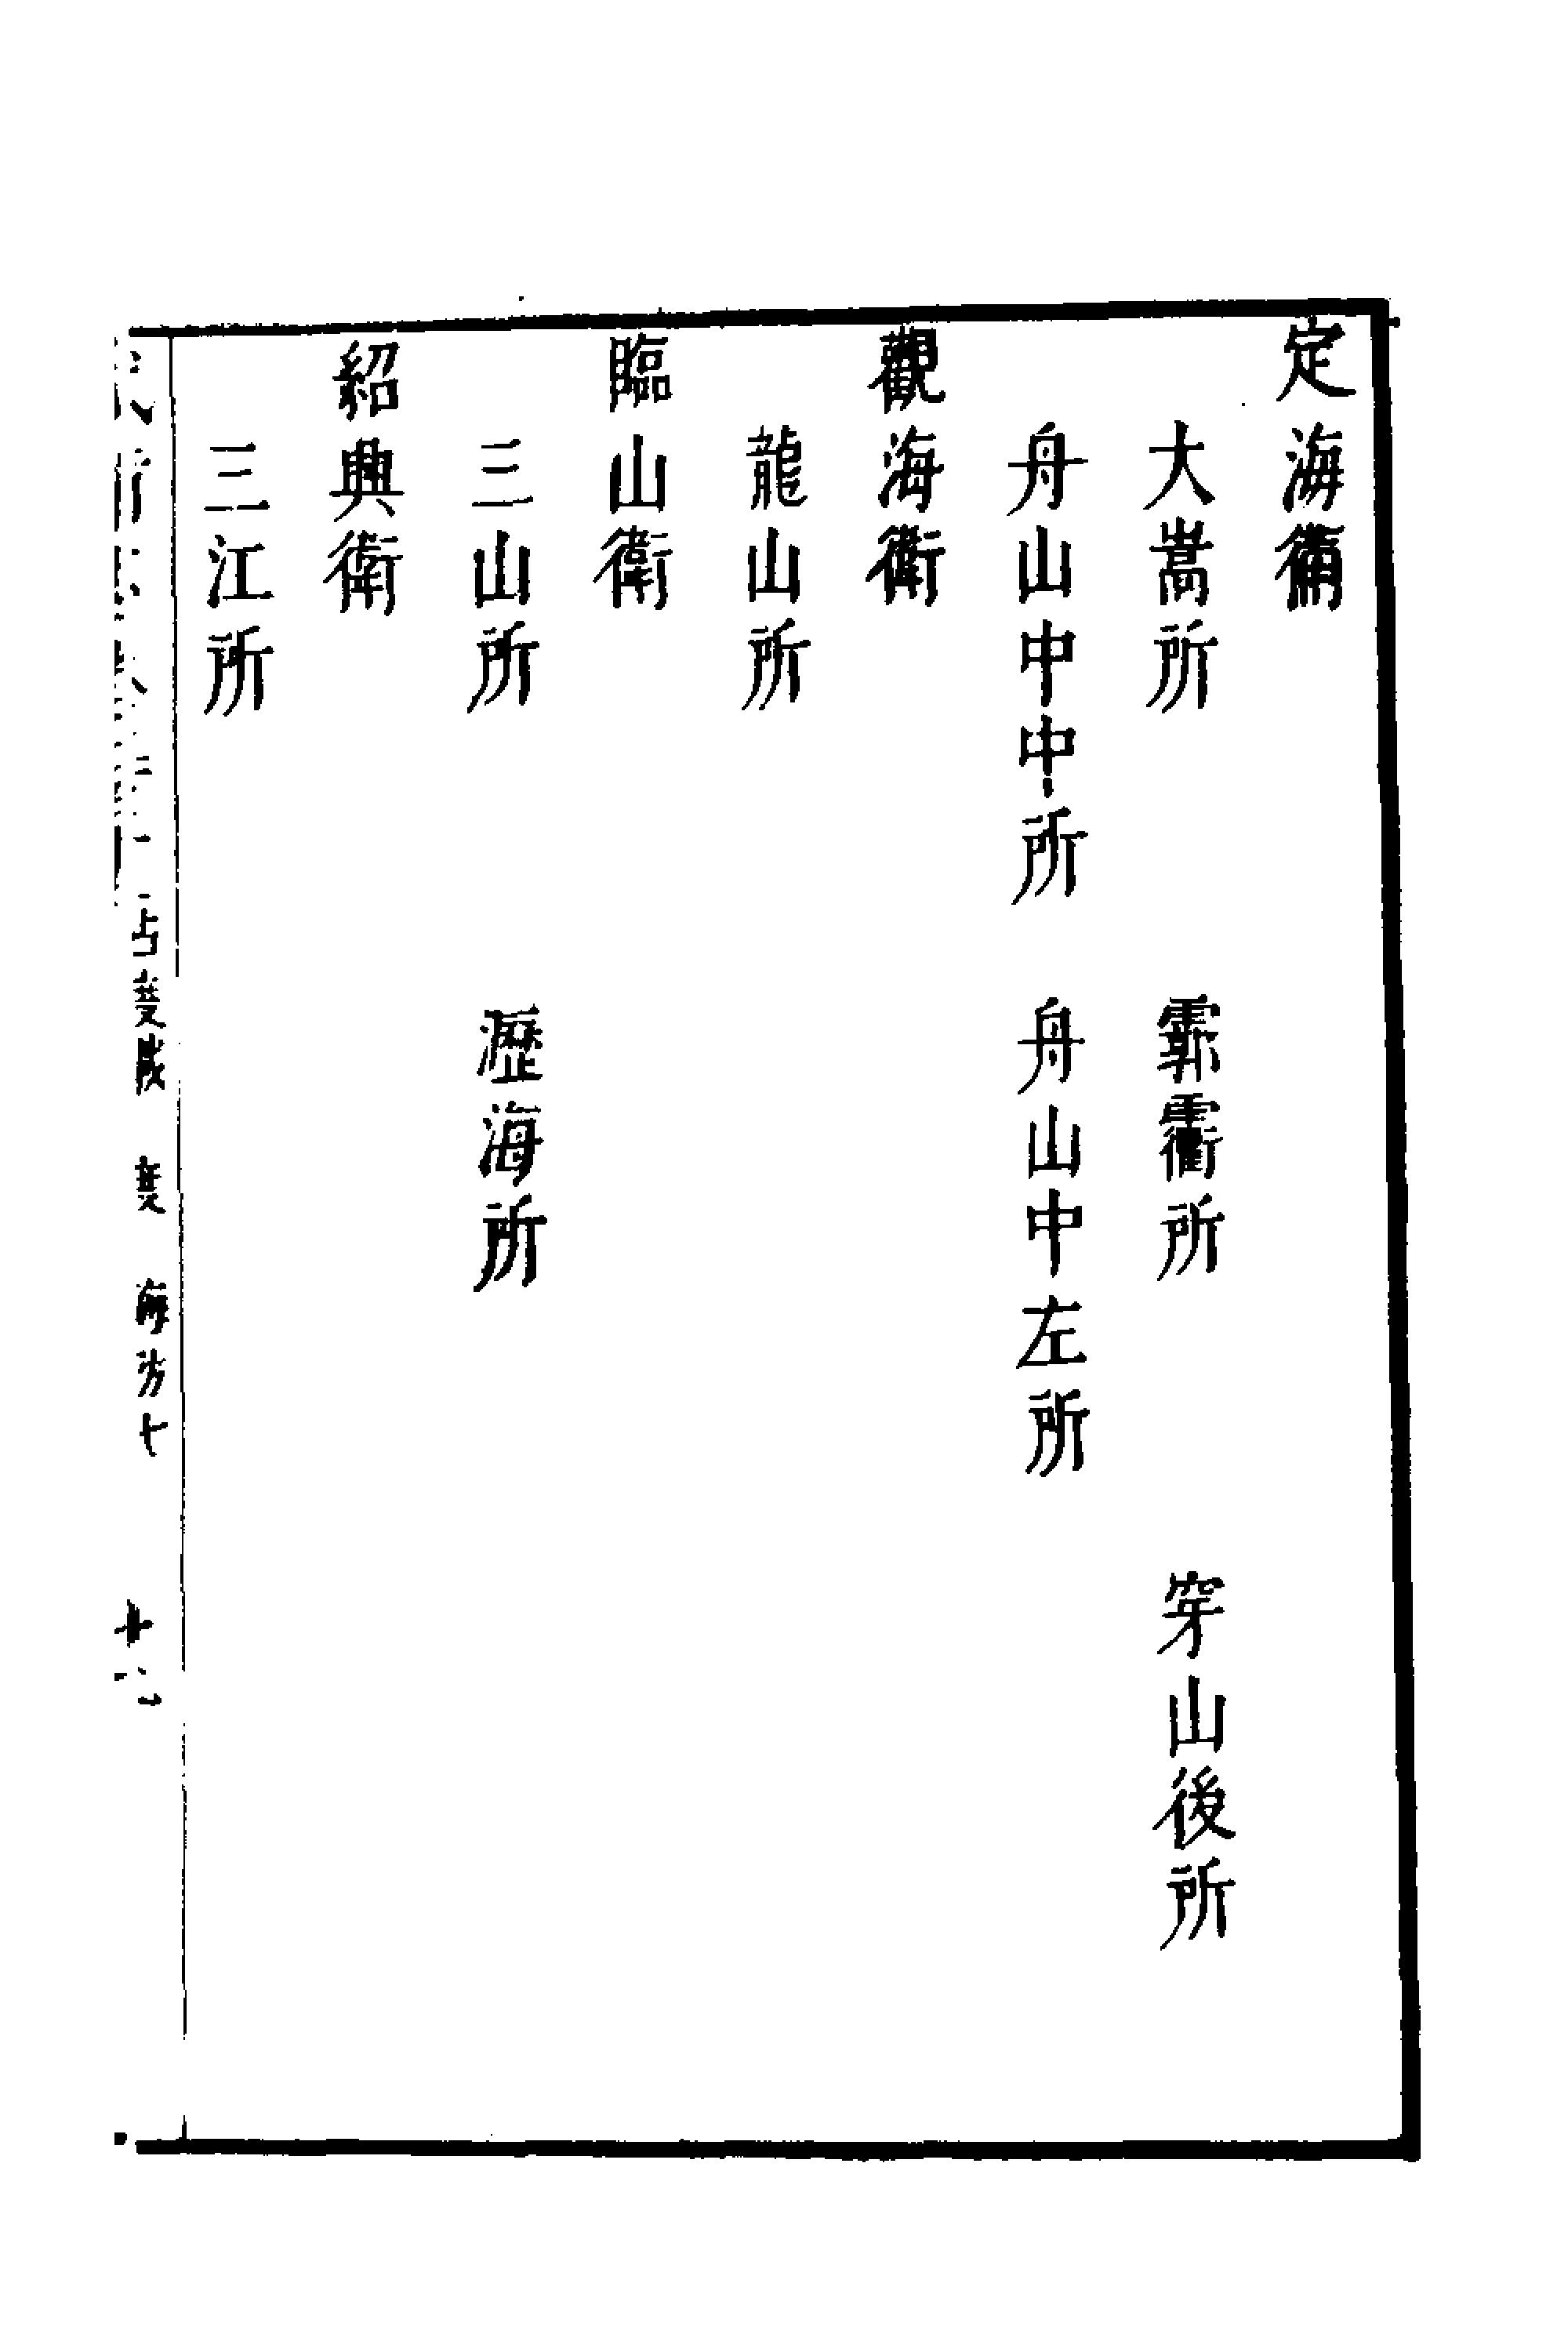 定海衛
大嵩所　霩𩇕所　穿山後所
舟山中中所　舟山中左所
觀海衛
龍山所
臨山衛
三山所　瀝海所
紹興衛
三江所
占度載　度　海防七